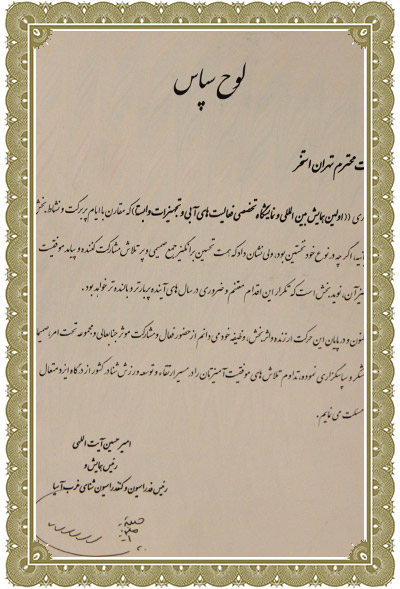 لوح سپاس
ت محترم تهران استخر
ری ((اولین همایش بین المللی و نمایشگاه تخصصی فعالیت های آبی و تجهیزات وابسته) که مقارن با ایام پربرکت و نشاط بخش
اگر چه در نوع خود نخستین بود، ولی نشان داد که همت تحسین برانگیز جمع صمیمی و پر تلاش مشارکت کننده و پیامد موفقیت
میز آن، نوید بخش است که تکرار این اقدام مغتنم و ضروری در سال های آینده پربارتر و بالنده تر خواهد بود.
نون و در پایان این حرکت ارزنده و اثربخش، وظیفه خود می دانم از حضور فعال و مشارکت موثر جنابعالی و مجموعه تحت امر، صمیما
شکر و سپاسگزاری نموده، تداوم تلاش های موفقیت آمیزتان را در مسیر ارتقاء و توسعه ورزش شنا در کشور از درگاه ایزد متعال
مسئلت می نمایم.
امیر حسین آیت اللهی
رئیس همایش و
رئیس فدراسیون و کنفدراسیون شنای غرب آسیا